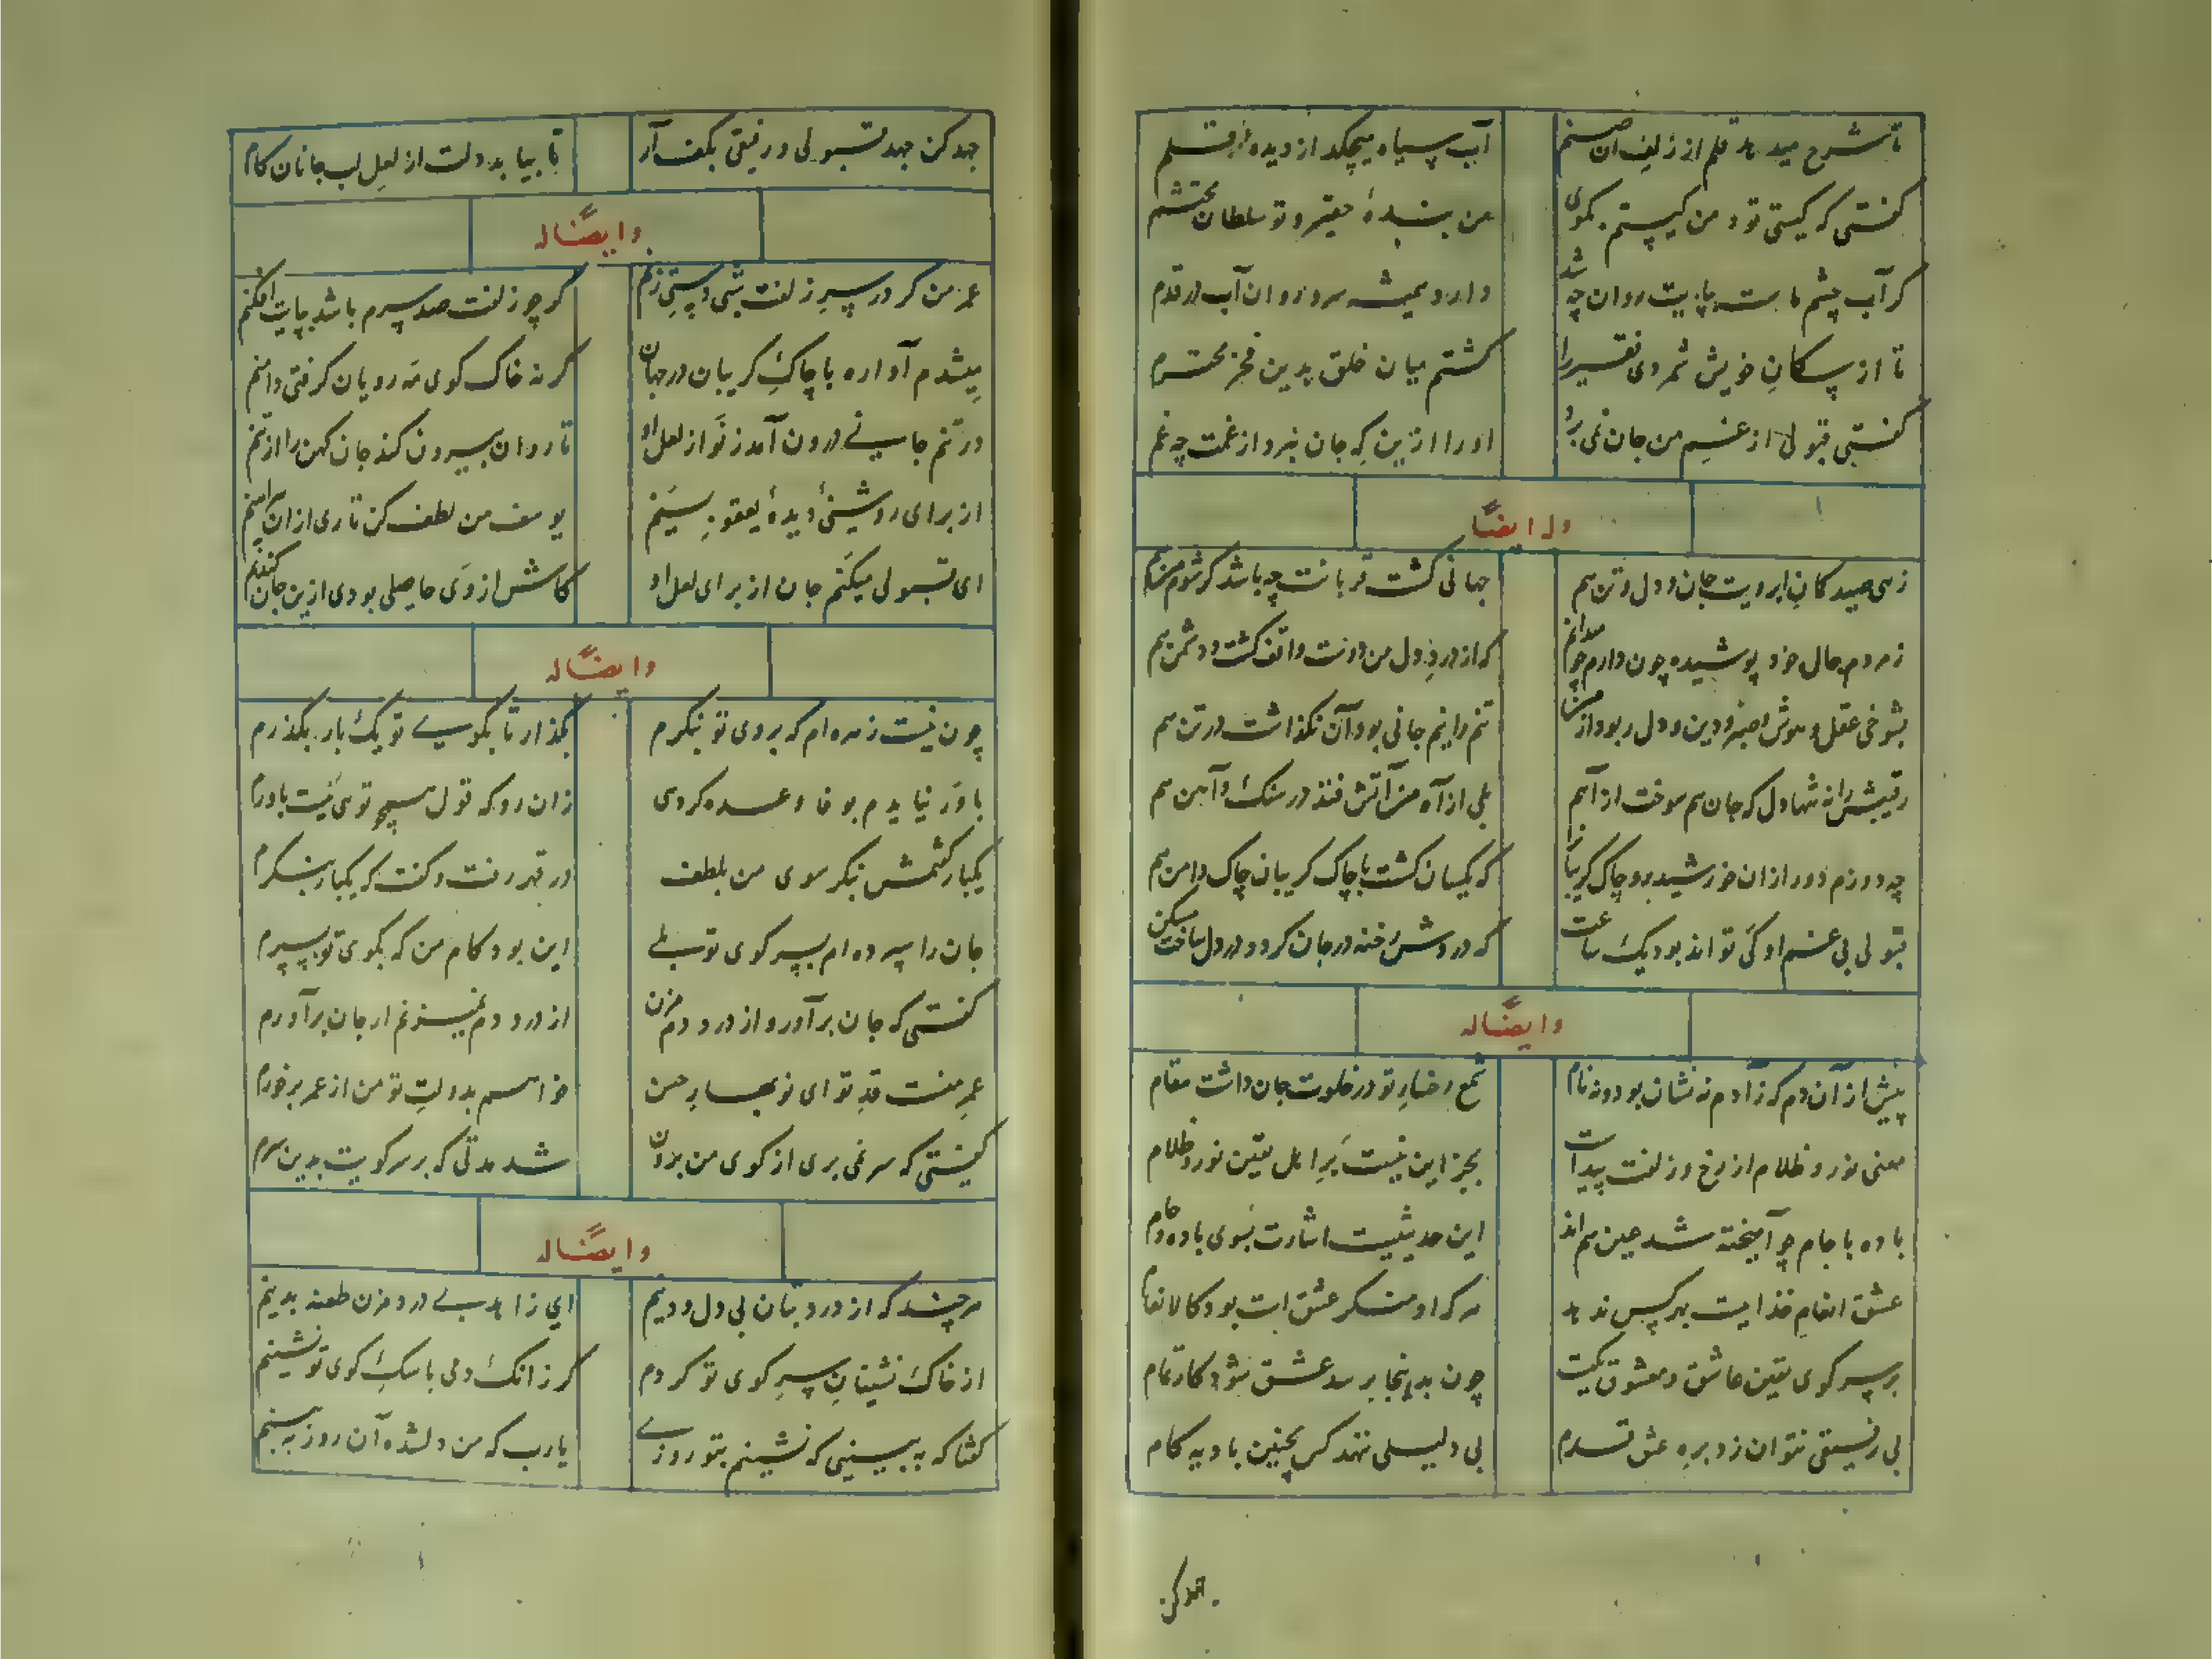 تا شرح میدهد قلم از زلف آن صنم
آب سیاه میچکد از دیدهٔ قلم
گفتی که کیستی تو و من کیستم بگوی
من بندهٔ حقیر و تو سلطان محتشم
گر آب چشم ماست بپایت روان چه شد
دارد همیشه سرو روان آب در قدم
تا از سکان خویش شمردی فقیر را
گشتم میان خلق بدین فخر محترم
گفتی قبولی از غم من جان نمی برد
او را ازین که جان نبرد از غمت چه غم
وله ایضاً
زهی صید کمان ابرویت جان و دل و تن هم
جهانی گشت قربانت چه باشد گر شوم من هم
ز مردم حال خود پوشیده چون دارم چو میدانم
که از درد دل من دوست واقف گشت و دشمن هم
بشوخی عقل و هوش و صبر و دین و دل ربود از من
تنم را نیم جانی بود آن نگذاشت در تن هم
رقیبش را نه تنها دل که جان هم سوخت از آهم
بلی از آه من آتش فتد در سنگ و آهن هم
چه دوزم دور از آن خورشید رو چاک گریبان را
که یکسان گشت با چاک گریبان چاک دامن هم
قبولی بی غم او کی تواند بود یک ساعت
که دردش رخنه در جان کرد و در دل ساخت مسکن هم
وایضاً له
پیش از آن دم که ز آدم نه نشان بود و نه نام
شمع رخسار تو در خلوت جان داشت مقام
معنی نور و ظلام از رخ و زلفت پیداست
بجز این نیست بر اهل یقین نور و ظلام
باده با جام چو آمیخته شد عین هم اند
این حدیثیست اشارت بسوی باده و جام
عشق انعام خدایست بهر کس ندهد
هر که او منکر عشق است بود کالانعام
بر سر کوی یقین عاشق و معشوق یکیست
چون بدینجا برسد عشق شود کار تمام
بی رفیقی نتوان زد بره عشق قدم
بی دلیلی ننهد کس بچنین بادیه گام
جهد کن
جهد کن جهد قبولی و رفیقی بکف آر
تا بیابد دولت از لعل لب جانان کام
وایضاً له
عمر من گر در سر زلفت شبی دستی زنم
گر چو زلفت صد سرم باشد بپایت افکنم
میشدم آواره با چاک گریبان در جهان
گر نه خاک کوی مه رویان گرفتی دامنم
در تنم جانی درون آمد ز نو از لعل او
تا روان بیرون کند جان کهن را از تنم
از برای روشنی دیدهٔ یعقوب
یوسف من لطف کن تاری از آن پیراهنم
ای قبولی میکنم جان از برای لعل او
کاش از وی حاصلی بودی ازین جان کندنم
وایضاً له
چون نیست زهره ام که بروی تو بنگرم
بگذار تا بکوی تو یک بار بگذرم
باور نیایدم بوفا وعده کردی
زان رو که قول هیچ تویی نیست باورم
یکبار گفتمش بنگر سوی من بلطف
در قهر رفت و گفت که یکبار بنگرم
جان را سپرده ام بسر کوی تو بلی
این بود کام من که بکوی تو بسپرم
گفتی که جان برآور و از درد دم مزن
از درد دم نمیزنم ار جان برآورم
عمر منست قد تو ای نو بهار حسن
خواهم بدولت تو من از عمر برخورم
گفتی که سر نمی بری از کوی من برون
شد مدتی که بر سر کویت بدین سرم
وایضاً له
هر چند که از درد بتان بی دل و دینم
ای زاهد بی درد مزن طعنه بدینم
از خاک نشینان سر کوی تو گردم
گر زانک دمی با سگ کوی تو نشینم
گفتا که ببینی که نشینم بتو روزی
یارب که من دلشده آن روز ببینم